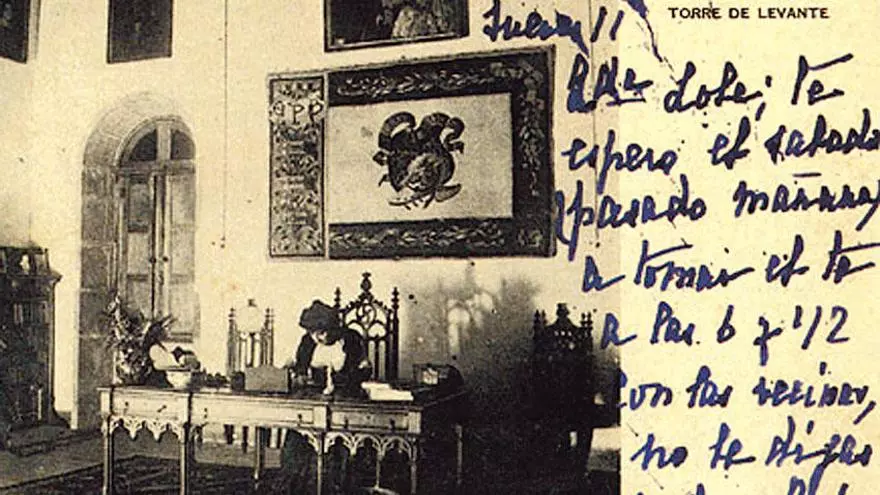 TORRE DE LEVANTE
Jueves 11
Lole; te
espero el sabado
(pasado mañana)
a tomar el te
a las 6 y 1/2
con las vecinas,
no le digas